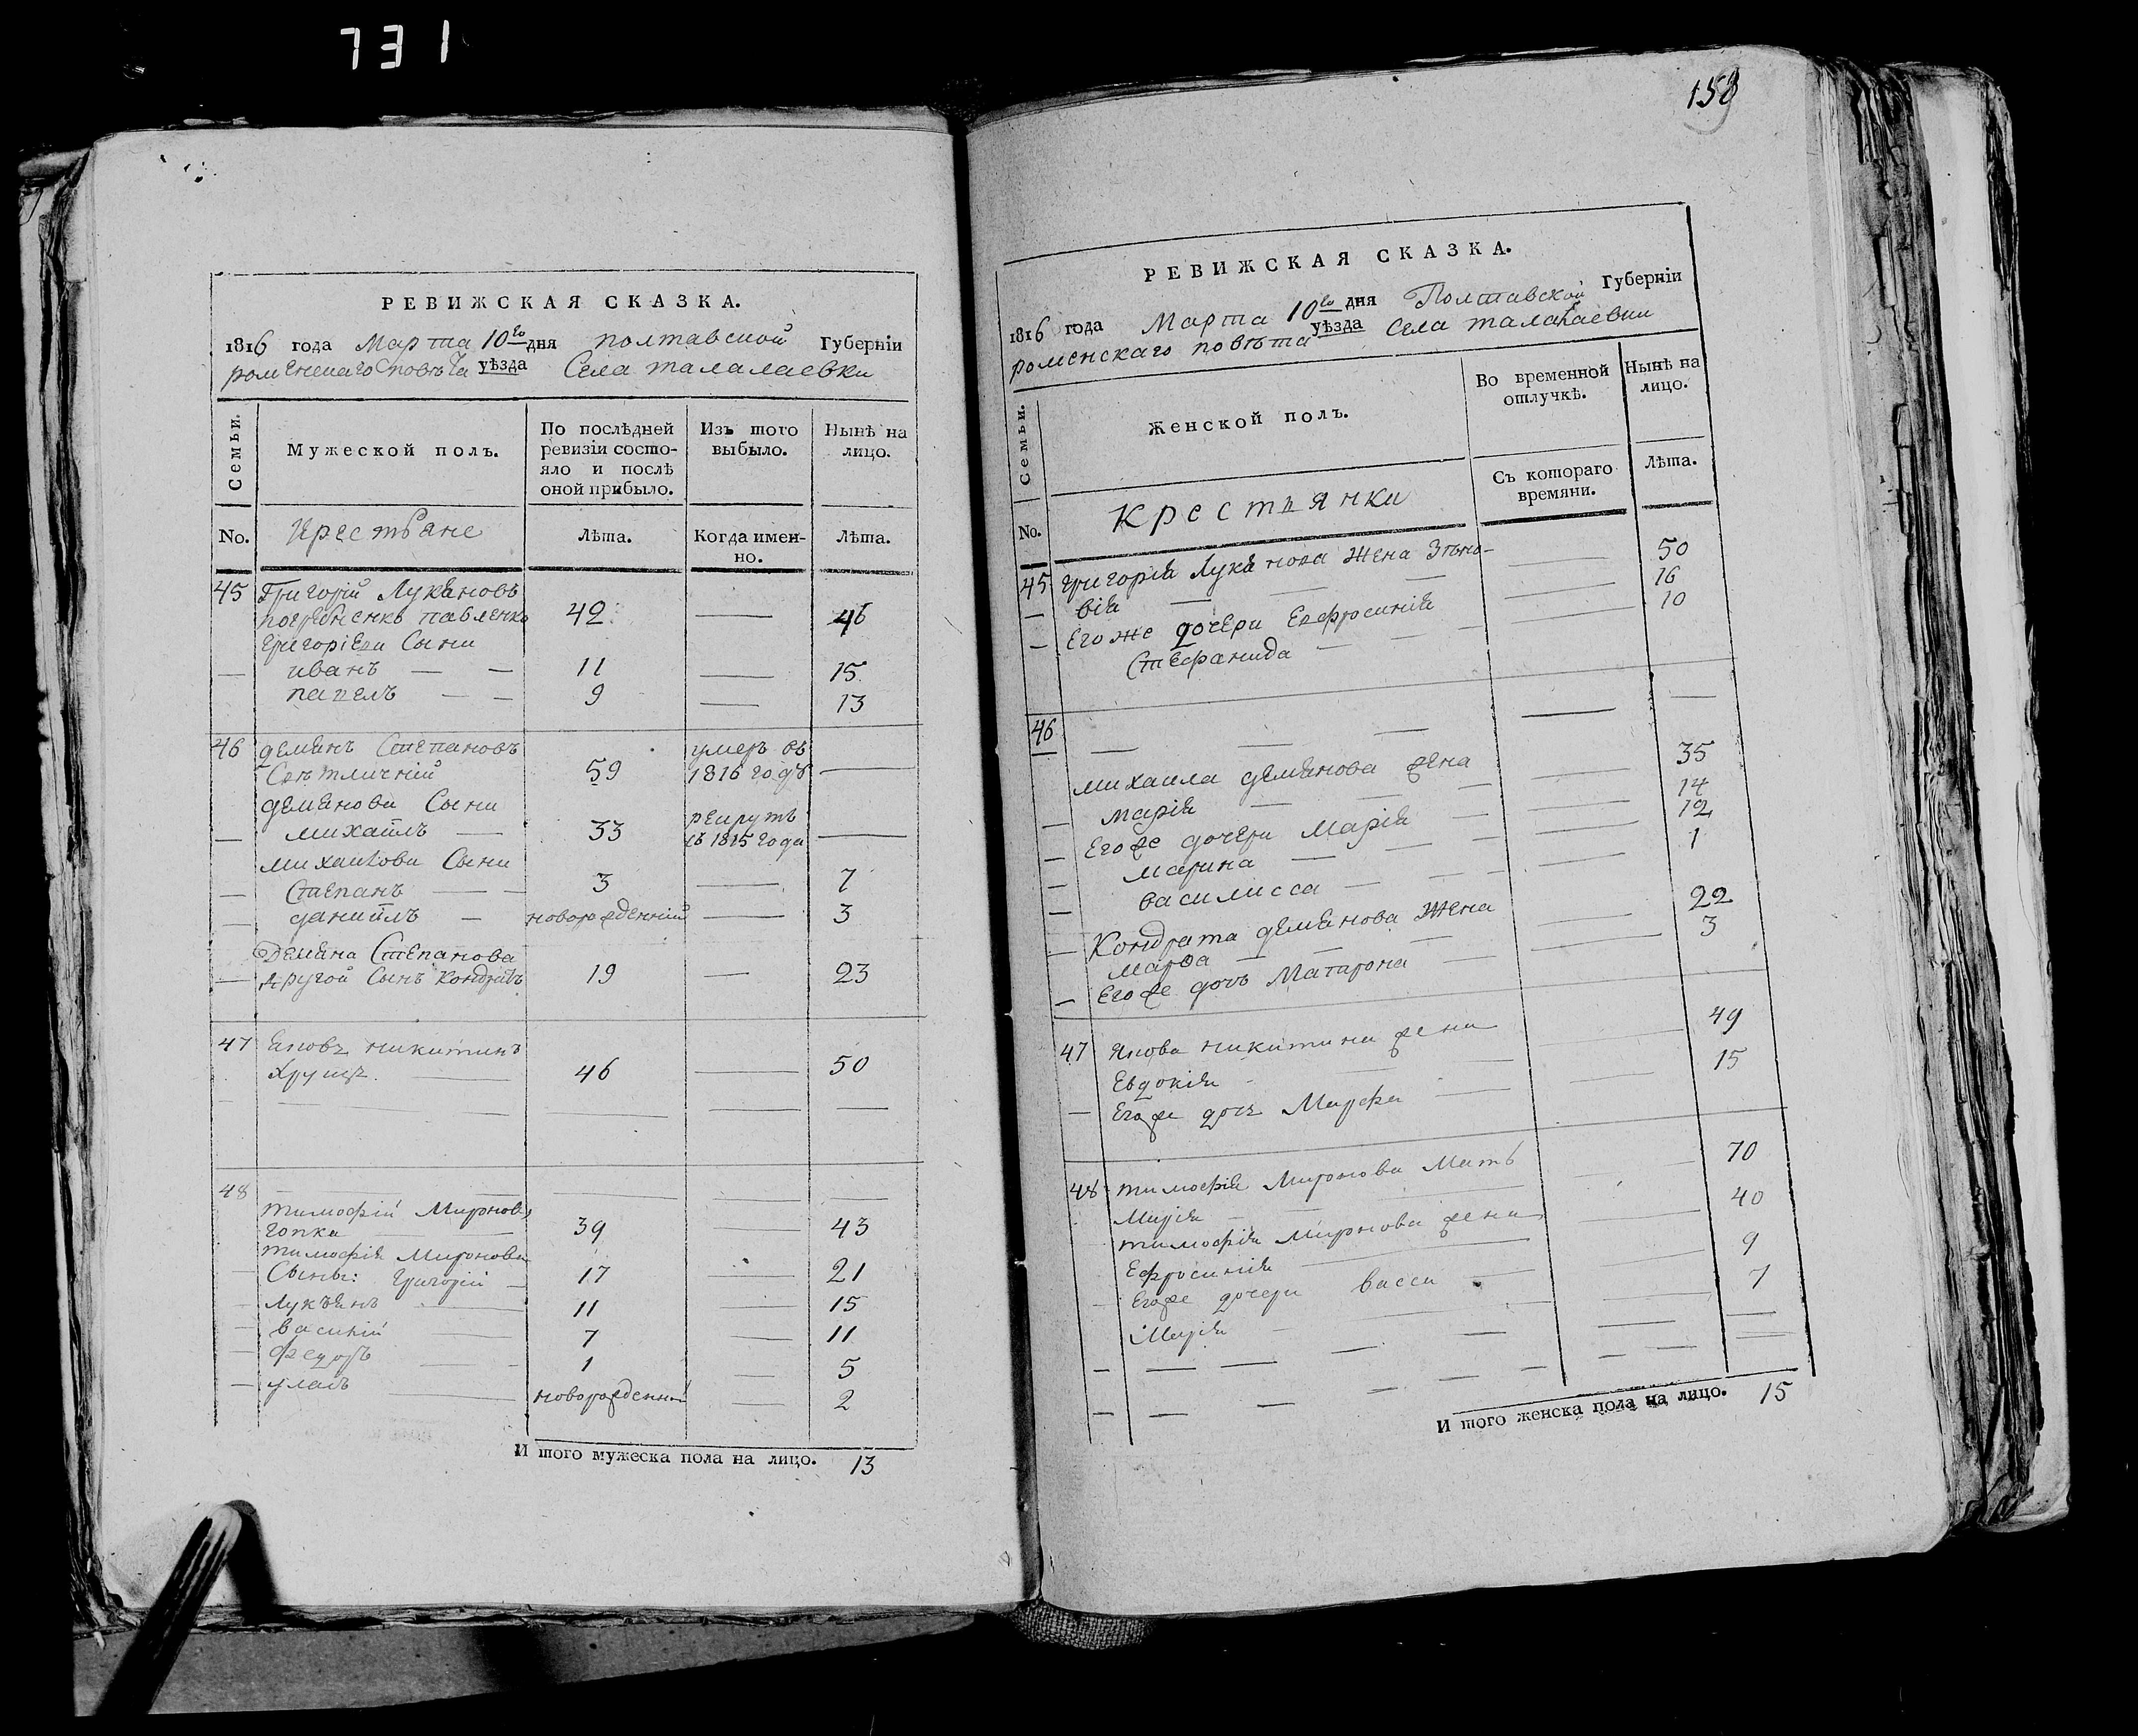 731
РЕВИЖСКАЯ СКАЗКА.
1816 года Марта 10го дня полтавской Губерніи
роменскаго повѣта уѣзда Села талалаевки
Семьи.
Мужеской полъ.
По послѣдней ревизіи состо-
яло и послѣ
оной прибыло.
Изъ того
выбыло.
Нынѣ на
лицо.
No. Крестьяне Лѣта. Когда имен-
но. Лѣта.
45 Григорій Лукяновъ
павленко 42 — 46
григоріеви Сыни
— иванъ — — 11 — 15
павелъ — — 9 — 13
46 демянъ Степановъ умеръ въ
59 1816 годѣ —
демянови Сыни
— михаилъ — 33 рекрутъ
съ 1815 года —
михаилови Сыни
— Степанъ — — 3 — 7
— даниилъ — новорожденний — 3
Демяна Степанова
— другой Сынъ Кондратъ 19 — 23
47 Яковъ никитинъ
хрущъ. — 46 — 50
— — — — — —
48 — — — —
тимофій Миронов
гопка — 39 — 43
тимофія Миронова
— Сыны: григорій — 17 — 21
— Лукъянъ — 11 — 15
— василій — 7 — 11
— федоръ — 1 — 5
— улас — новорожденний — 2
И того мужеска пола на лицо. 13
159
РЕВИЖСКАЯ СКАЗКА.
1816 года Марта 10го дня Полтавской Губерніи
роменскаго повѣта уѣзда Села талалаевки
Семьи.
Женской полъ.
Во временной
отлучкѣ.
Нынѣ на
лицо.
Съ котораго
времяни.
Лѣта.
No. Крестьянки
45 григорія Лукянова жена Зѣно- — 50
— вія — — — 16
— Егоже дочери Ефросинія — 10
Стефанида — —
46 — — — — —
михаила демянова жена — 35
— марія — — — 14
— Егоже дочери Марія — 12
— марина — — — 1
— василисса — — —
— Кондрата демянова жена — 22
марфа — — — 3
— Егоже дочь Матрона —
47 Якова никитина жена — 49
Евдокія — — 15
— Егоже дочь Марфа —
48 тимофія Миронова Мать — 70
Марія — — 40
тимофія Миронова жена — 9
Ефросинія — — 7
— Егоже дочери васса — —
Марія — — —
— — — — —
— — — — —
И того женска пола на лицо. 15